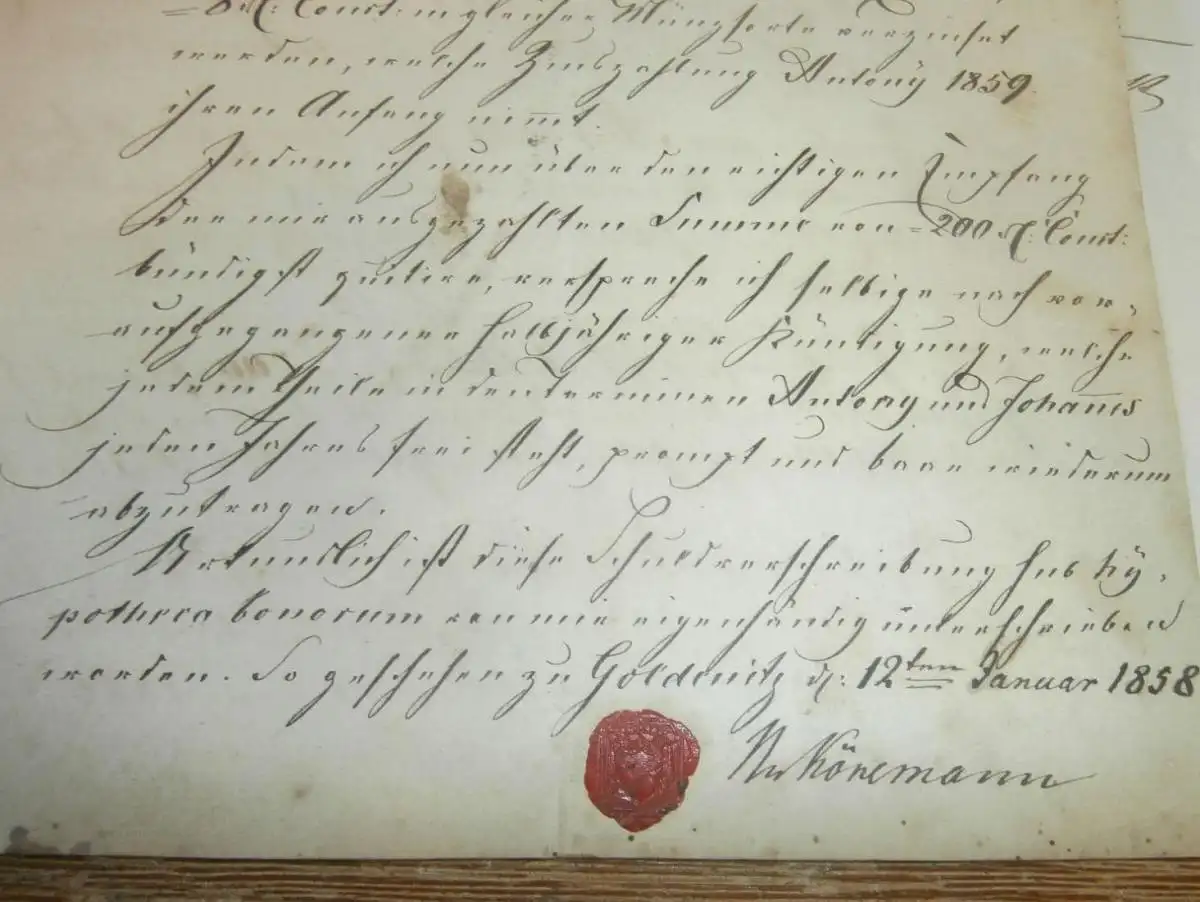 = 8 rℓ: Court: in gleicher Münzsorte verzinset
werden, welche Zinszahlung Antony 1859.
ihren Anfang nim̅t.
Indem ich nun über den richtigen Empfang
der mir ausgezahlten Summe von = 200 rℓ: Court:
bündigst quitire, verspreche ich selbige nach vor-
aufgegangener halbjähriger Kündigung, welche
jedem Theile in den Terminen Antony und Johan̅is
jeden Jahres frei steht, prompt und baar wiederum
abzutragen.
Urkundlich ist diese Schuldverschreibung sub hy-
potheca bonorum von mir eigenhändig unterschrieben
worden. So geschehen zu Goldenitz d: 12ten Januar 1858
Könemann